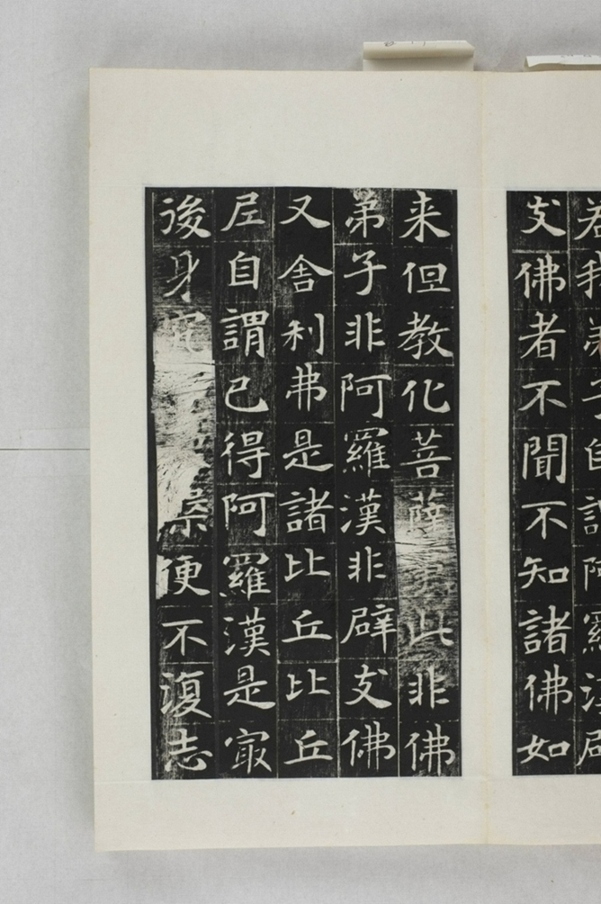 若我弟子自謂阿羅漢辟
支佛者不聞不知諸佛如
来但教化菩薩事此非佛
弟子非阿羅漢非辟支佛
又舍利弗是諸比丘比丘
尼自謂已得阿羅漢是冣
後身究槃便不復志